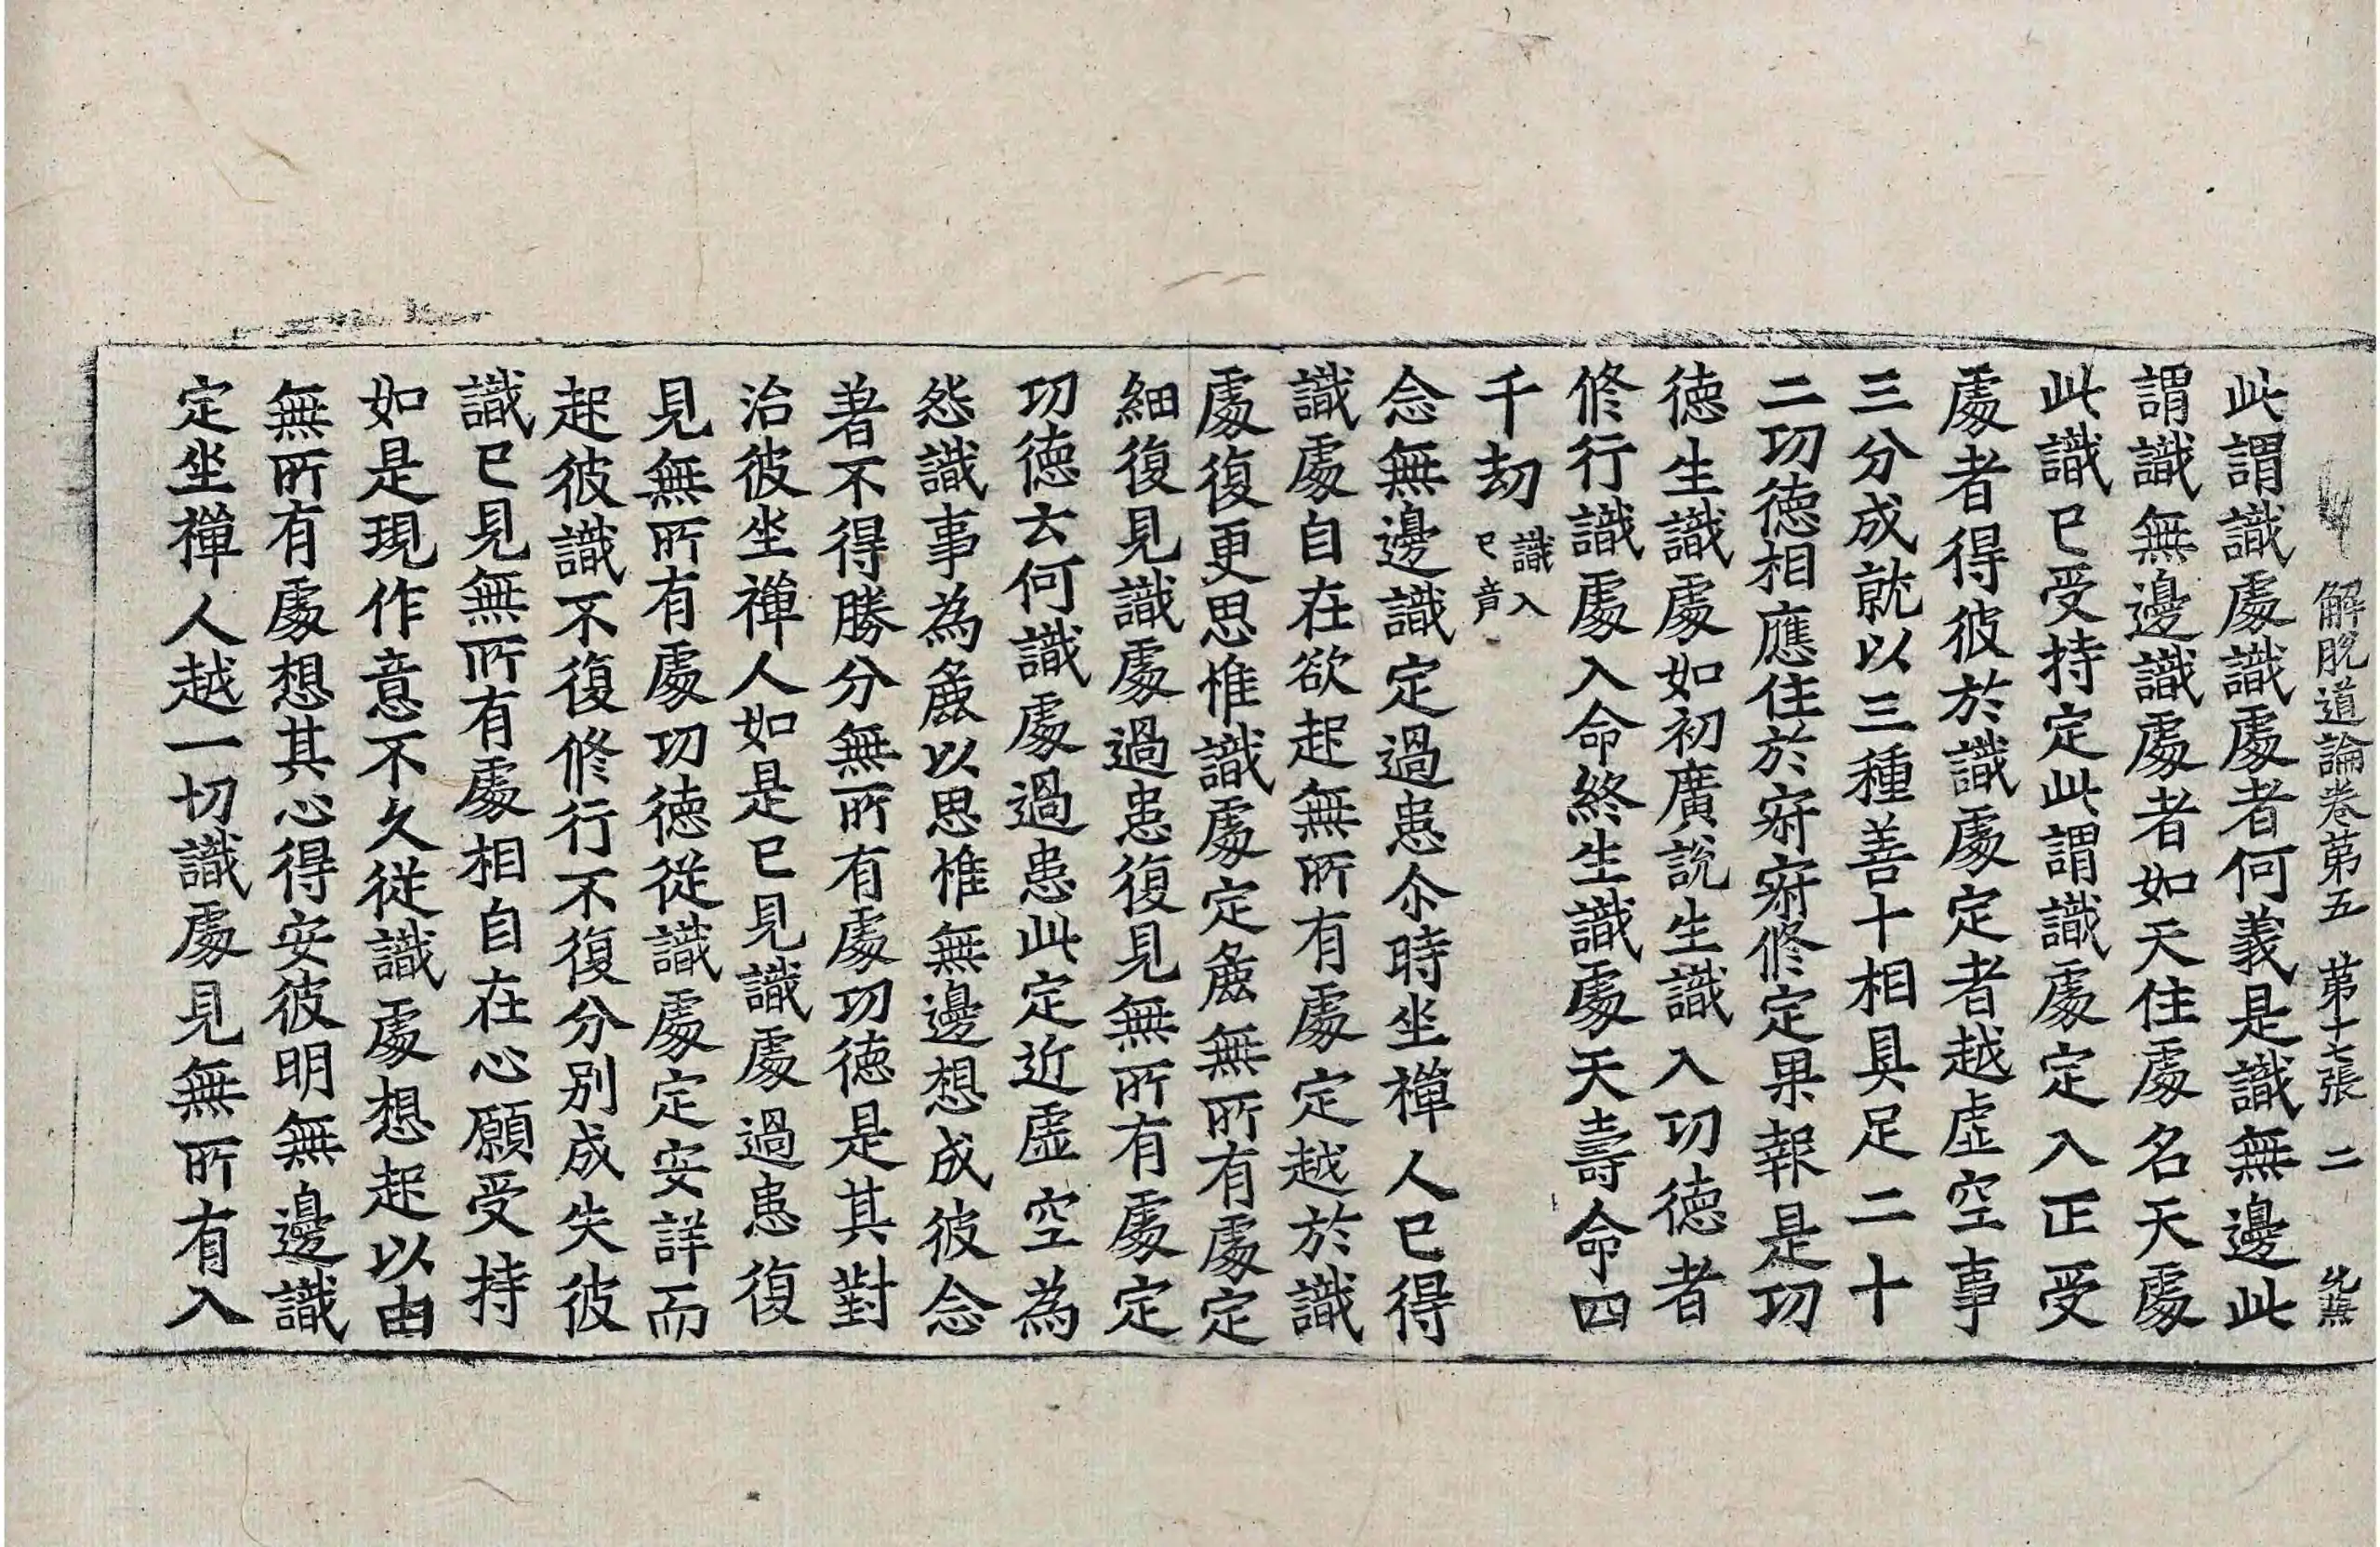 解脫道論卷第五　第十七張　二
此謂識處識處者何義是識無邊此
謂識無邊識處者如天住處名天處
此識已受持定此謂識處定入正受
處者得彼於識處定者越虛空事
三分成就以三種善十相具足二十
二功德相應住於㝛㝛修定果報是功
德生識處如初廣說生識入功德者
修行識處入命終生識處天壽命四
千劫識入已竟
念無邊識定過患尒時坐禪人已得
識處自在欲起無所有處定越於識
處復更思惟識處定麁無所有處定
細復見識處過患復見無所有處定
功德云何識處過患此定近虛空為
怨識事為麁以思惟無邊想成彼念
著不得勝分無所有處功德是其對
治彼坐禪人如是已見識處過患復
見無所有處功德從識處定安詳而
起彼識不復修行不復分別成失彼
識已見無所有處相自在心願受持
如是現作意不久從識處想起以由
無所有處想其心得安彼明無邊識
定坐禪人越一切識處見無所有入